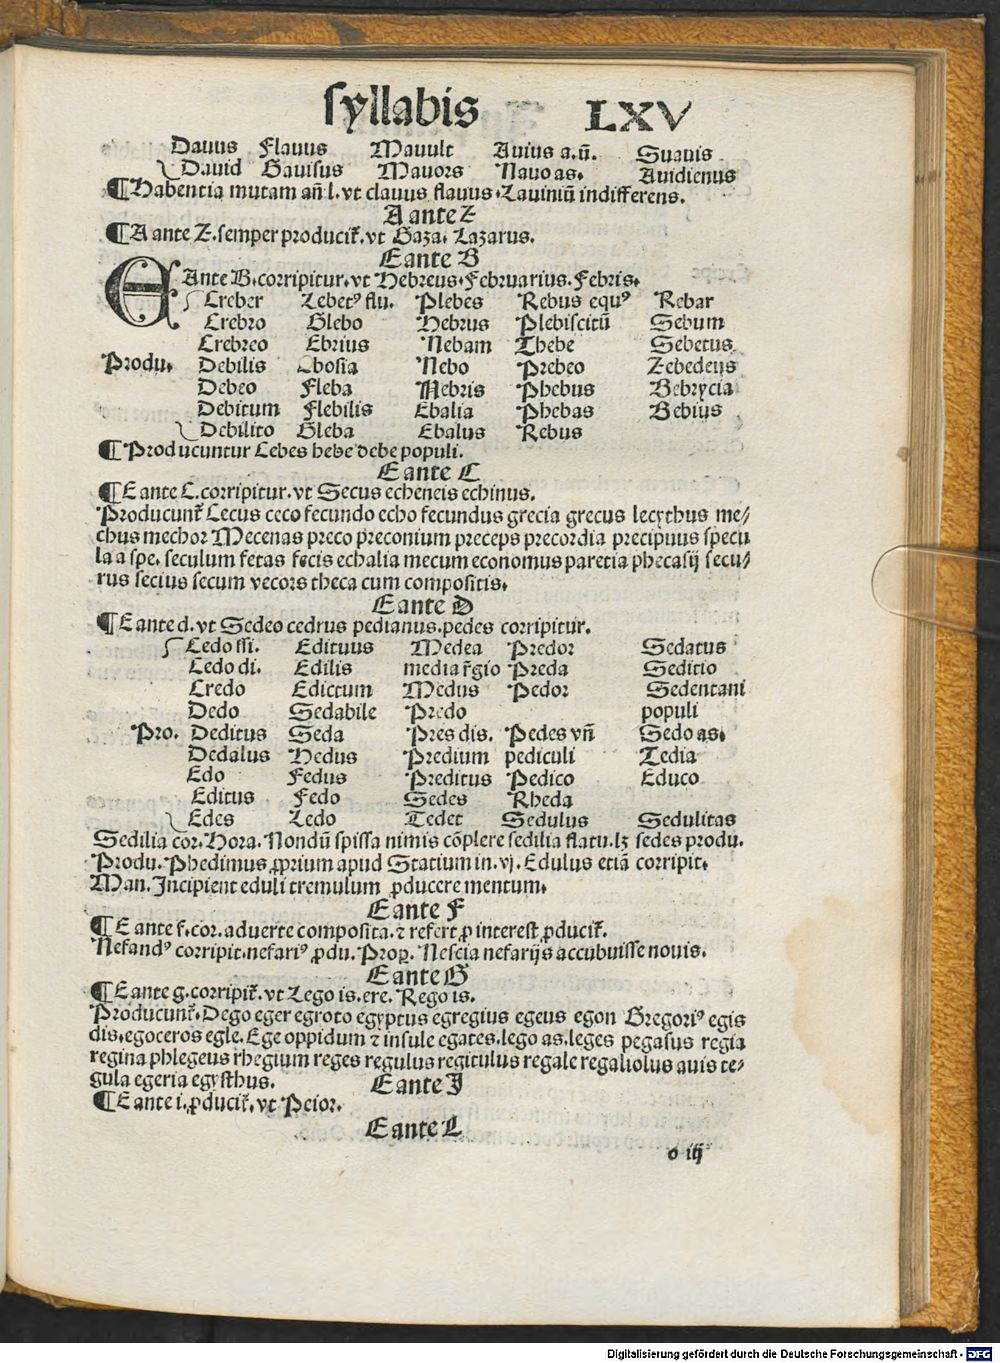 syllabis LXV
Dauus Flauus Mauult Auius a.ũ. Suauis
Dauid Gauisus Mauors Nauo as. Auidienus
¶Habentia mutam añ l. vt clauus flauus. Lauiniũ indifferens.
A ante Z
¶A ante Z. semper producit᷑. vt Gaza. Lazarus.
E ante B
EAnte B. corripitur. vt Hebreus. Februarius. Febris.
Creber Lebetꝰ flu. Plebes Rebus equꝰ Rebar
Crebro Glebo Hebrus Plebiscitũ Sebum
Crebreo Ebrius Nebam Thebe Sebetus
Produ. Debilis bosia Nebo Prebeo Zebedeus
Debeo Fleba Nebris Phebus Bebrycia
Debitum Flebilis Ebalia Phebas Bebius
Debilito Gleba Ebalus Rebus
¶Producuntur Cebes hebe debe populi.
E ante C
¶E ante C. corripitur. vt Secus echeneis echinus.
Producunt᷑ Cecus ceco fecundo echo fecundus grecia grecus lecythus me/
chus mechor Mecenas preco preconium preceps precordia precipuus specu
la a spe. seculum fetas fecis echalia mecum economus paretia phecasij secu/
rus secius secum vecors theca cum compositis.
E ante D
¶E ante d. vt Sedeo cedrus pedianus. pedes corripitur.
Cedo ssi. Edituus Medea Predor Sedatus
Cedo di. Edilis media r̃gio Preda Seditio
Credo Edictum Medus Pedor Sedentani
Dedo Sedabile Predo populi
Pro. Deditus Seda Pres dis. Pedes vñ Sedo as.
Dedalus Hedus Predium pediculi Tedia
Edo Fedus Preditus Pedico Educo
Editus Fedo Sedes Rheda
Edes Ledo Tedet Sedulus Sedulitas
Sedilia cor. Hora. Nondũ spissa nimis cõplere sedilia flatu. lꝫ sedes produ.
Produ. Phedimus ꝓprium apud Statium in. vj. Edulus etiã corripit.
Man. Incipient eduli tremulum ꝓducere mentum.
E ante F
¶E ante f. cor. aduerte composita. ⁊ refert ꝓ interest ꝓducit᷑.
Nefandꝰ corripit. nefariꝰ ꝓdu. Prop̱. Nescia nefarijs accubuisse nouis.
E ante G
¶E ante g. corripit᷑. vt Lego is. ere. Rego is.
Producunt᷑. Dego eger egroto egyptus egregius egeus egon Gregoriꝰ egis
dis. egoceros egle. Ege oppidum ⁊ insule egates. lego as. leges pegasus regia
regina phlegeus rhegium reges regulus regiculus regale regaliolus auis te⸗
gula egeria egysthus. E ante I
¶E ante i. ꝓducit᷑. vt Peior.
E ante L
o iij
Digitalisierung gefördert durch die Deutsche Forschungsgemeinschaft - DFG